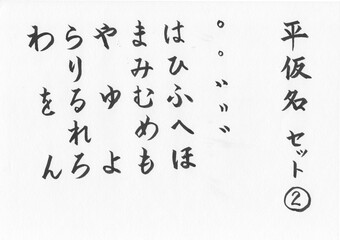 平仮名 セット②
゜゜゛゛゛
はひふへほ
まみむめも
やゆよ
らりるれろ
わをん